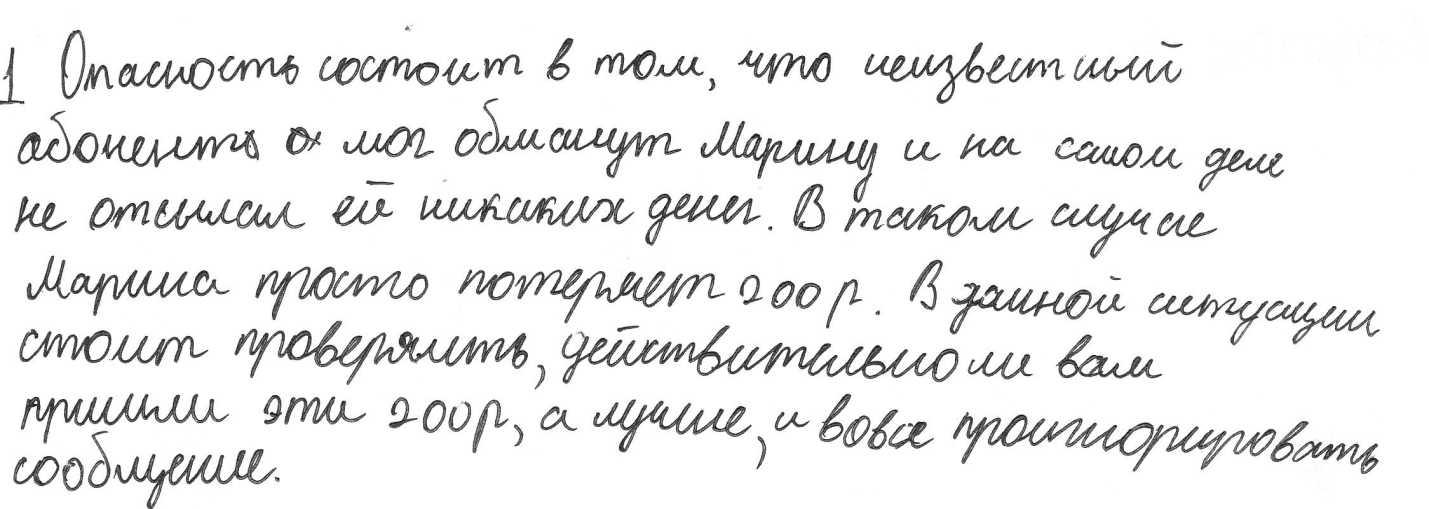 1 Опасность состоит в том, что неизвестный
абонент мог обманут Марину и на самом деле
не отсылал ей никаких денег. В таком случае
Марина просто потеряет 200 р. В данной ситуации
стоит проверять, действительно ли вам
пришли эти 200р, а лучше, и вовсе проигнорировать
сообщение.